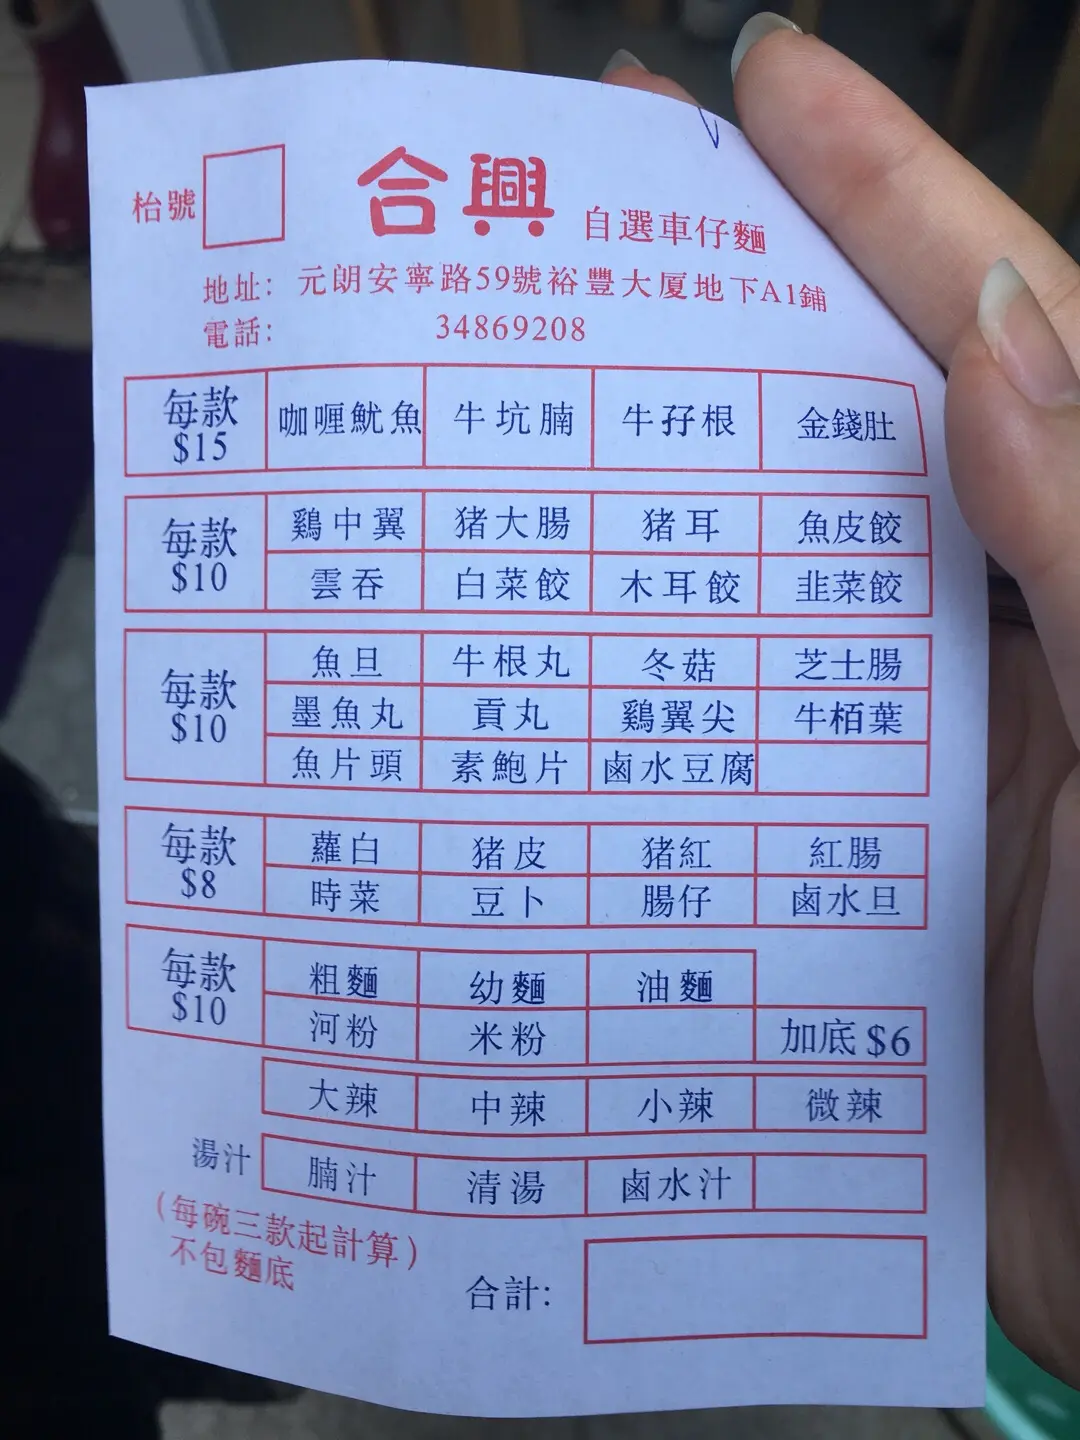 枱號
合興 自選車仔麵
地址: 元朗安寧路59號裕豐大厦地下A1鋪
電話: 34869208
每款 $15 咖喱魷魚 牛坑腩 牛孖根 金錢肚
每款 $10 鷄中翼 猪大腸 猪耳 魚皮餃
雲吞 白菜餃 木耳餃 韭菜餃
每款 $10 魚旦 牛根丸 冬菇 芝士腸
墨魚丸 貢丸 鷄翼尖 牛栢葉
魚片頭 素鮑片 鹵水豆腐
每款 $8 蘿白 猪皮 猪紅 紅腸
時菜 豆卜 腸仔 鹵水旦
每款 $10 粗麵 幼麵 油麵
河粉 米粉 加底 $6
大辣 中辣 小辣 微辣
湯汁 腩汁 清湯 鹵水汁
(每碗三款起計算)
不包麵底
合計: